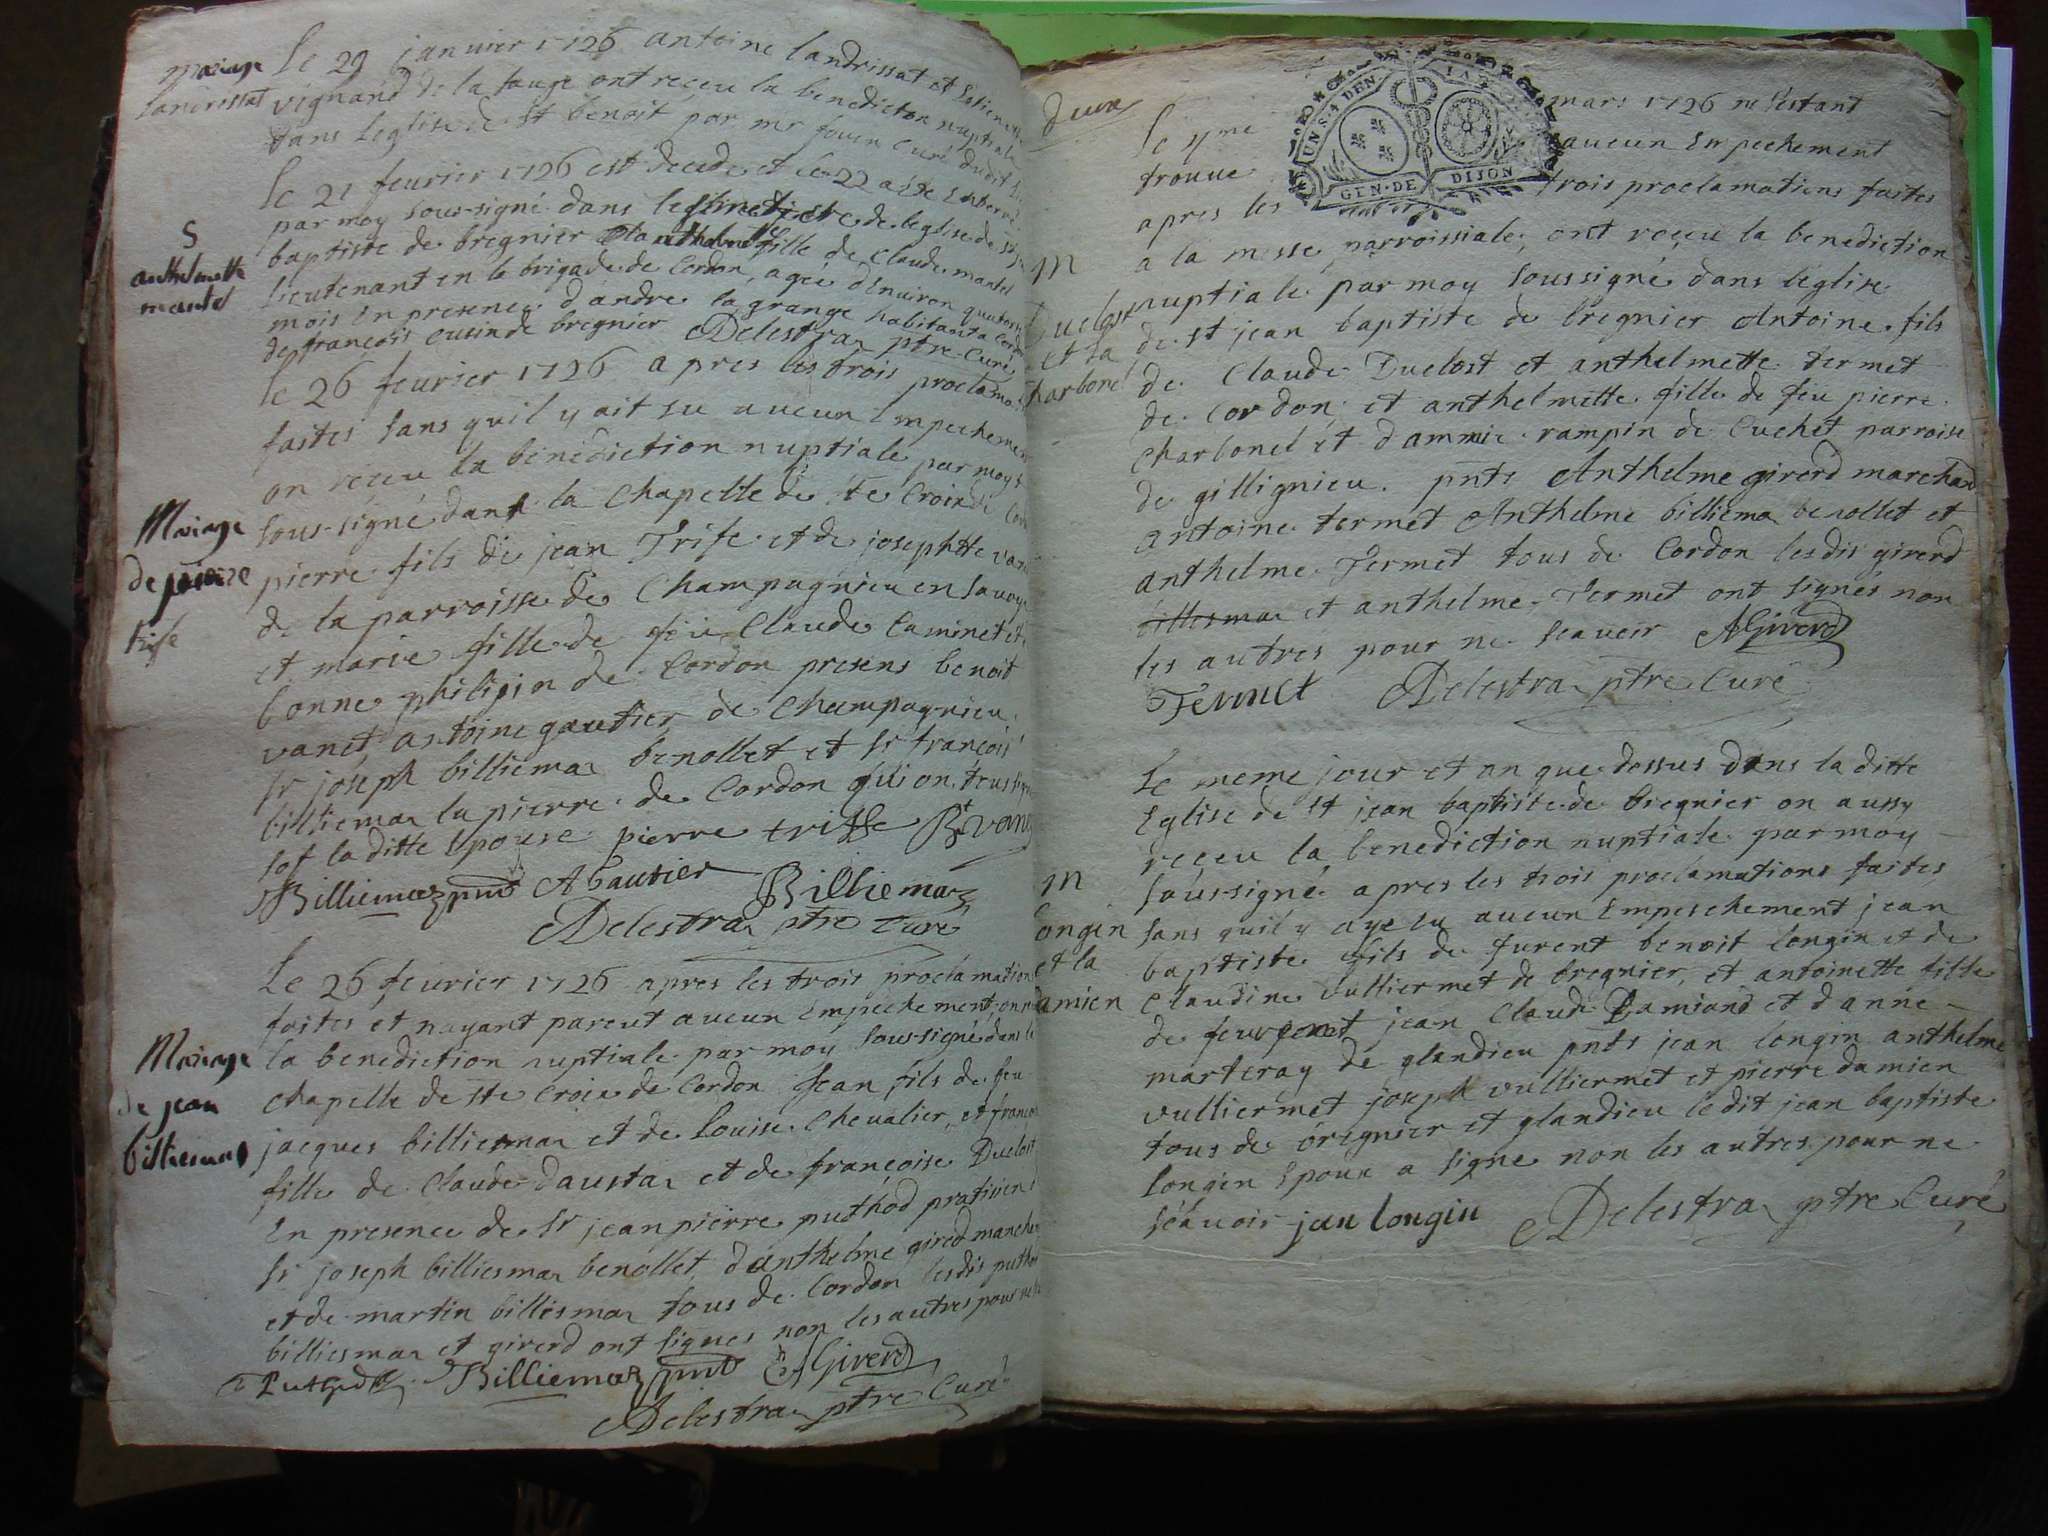 mariage
landrissat
Le 29 janvier 1726 antoine landrissat et
vignand de la lauge ont receu la benediction nuptiale
dans leglise de st benoit par mr curé dudit
S
anthelmette
mantel
Le 21 feurier 1726 est decede et le 22 a été Enterré
par moy sous-signé dans le simetiere de leglise de st
baptiste de bregnier anthelmette fille de Claude mantel
lieutenant en la brigade de Cordon, agée d'Enuiron quatorse
mois En presence d'andre la grange habitant a
de françois cusin de bregnier Delestra ptre Curé
Mariage
de pierre
trife
Le 26 feurier 1726 apres les trois proclama
faites sans quil y ait su aucun Empechement
on receu la benediction nuptiale par moy
sous-signé dans la Chapelle de ste Croix de
pierre fils de jean Trife et de josephtte
de la parroisse de Champagnieu en Sauoye
et marie fille de feu Claude Caminet et
bonne philipin de Cordon presens benoit
vanet, antoine gautier de Champagnieu,
sr joseph billiemaz benollet et sr françois
billiemaz la pierre de Cordon qui on tous
sof la ditte Epouse pierre triffe Bt vanet
Billiemaz AGautier Billiemaz
Delestra ptre Curé
Mariage
de jean
billiemas
Le 26 feurier 1726 apres les trois proclamation
faites et nayant pareut aucun Empechement, on
la benediction nuptiale par moy sous-signé dans la
chapelle de ste Croix de Cordon Jean fils de feu
jacques billiesmaz et de Louise Cheualier, et
fille de Claude Daustaz et de françoise Duclost
En presence de sr jean pierre puthod pratissien
sr joseph billiesmaz benollet, d'anthelme gired
et de martin billiesmaz tous de Cordon lesdis
billiesmaz et girerd ont signes non les autres pour
Puthod Billiemaz AGirerd
Delestra ptre Curé
deux
UN S. 4 DEN.
GEN. DE DIJON
Le mars 1726 ne sestant
trouue aucun Enpechement
apres les trois proclamations faites
m
Duclost
et la
charbonel
a la messe parroissiale, ont reçeu la benediction
nuptiale par moy soussigné dans l'eglise
de st jean baptiste de bregnier Antoine fils
de Claude Duclost et anthelmette termet
de Cordon, et anthelmette fille de feu pierre
Charbonel et d'ammie rampin de Cuchet parroise
de gillignieu. pnts Anthelme girerd marchand
antoine termet Anthelme billiemaz benollet et
anthelme Termet tous de Cordon lesdis girerd
billesmaz et anthelme Termet ont signés non
les autres pour ne scauoir AGirerd
Termet Delestra ptre Curé
m
Longin
et la
damien
Le meme jour et an que dessus dans la ditte
Eglise de st jean baptiste de bregnier on aussy
reçeu la benediction nuptiale par moy
sous-signé apres les trois proclamations faites
sans quil y aye eu aucun Empeschement jean
baptiste fils de furent benoit longin et de
Claudine vulliermet de bregnier, et antoinette fille
de jean Claude Damiand et d'anne
marteray de glandieu pnts jean longin anthelme
vulliermet joseph vulliermet et pierre damien
tous de bregnier et glandieu le dit jean baptiste
longin Epoux a signe non les autres pour ne
scauoir jean longin Delestra ptre Curé